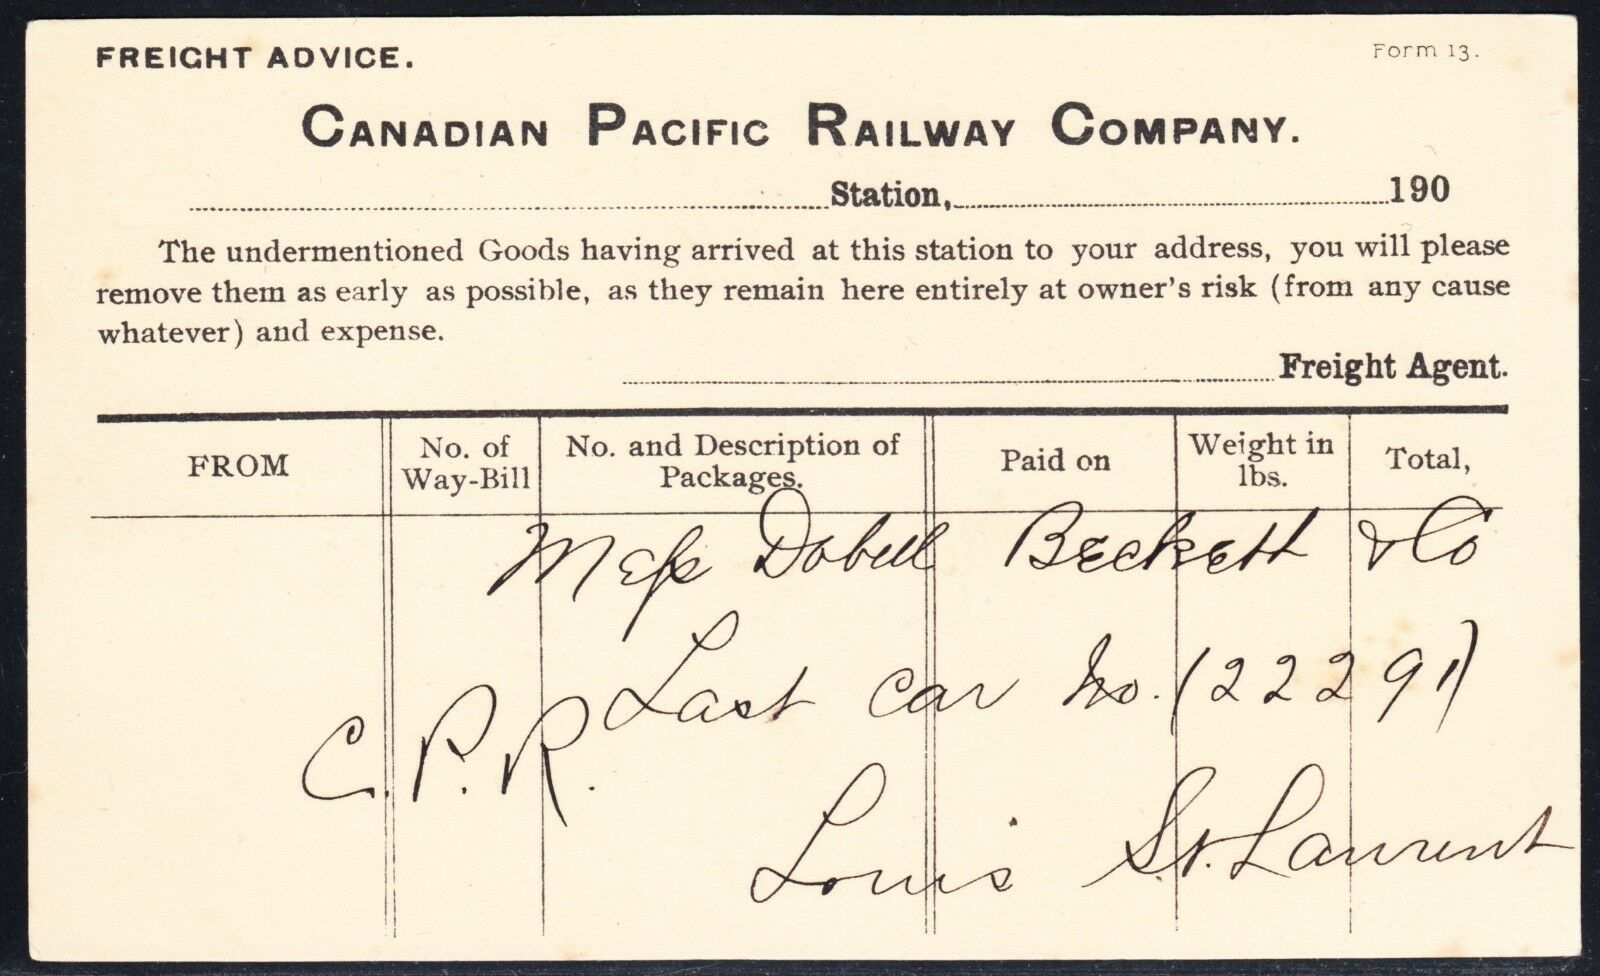 FREIGHT ADVICE.
Form 13.
CANADIAN PACIFIC RAILWAY COMPANY.
Station, 190
The undermentioned Goods having arrived at this station to your address, you will please
remove them as early as possible, as they remain here entirely at owner's risk (from any cause
whatever) and expense.
Freight Agent.
FROM
No. of
Way-Bill
No. and Description of
Packages.
Paid on
Weight in
lbs.
Total,
Mess Dobell Beckett & Co
Last car No. (22291)
C.P.R.
Louis St. Laurent